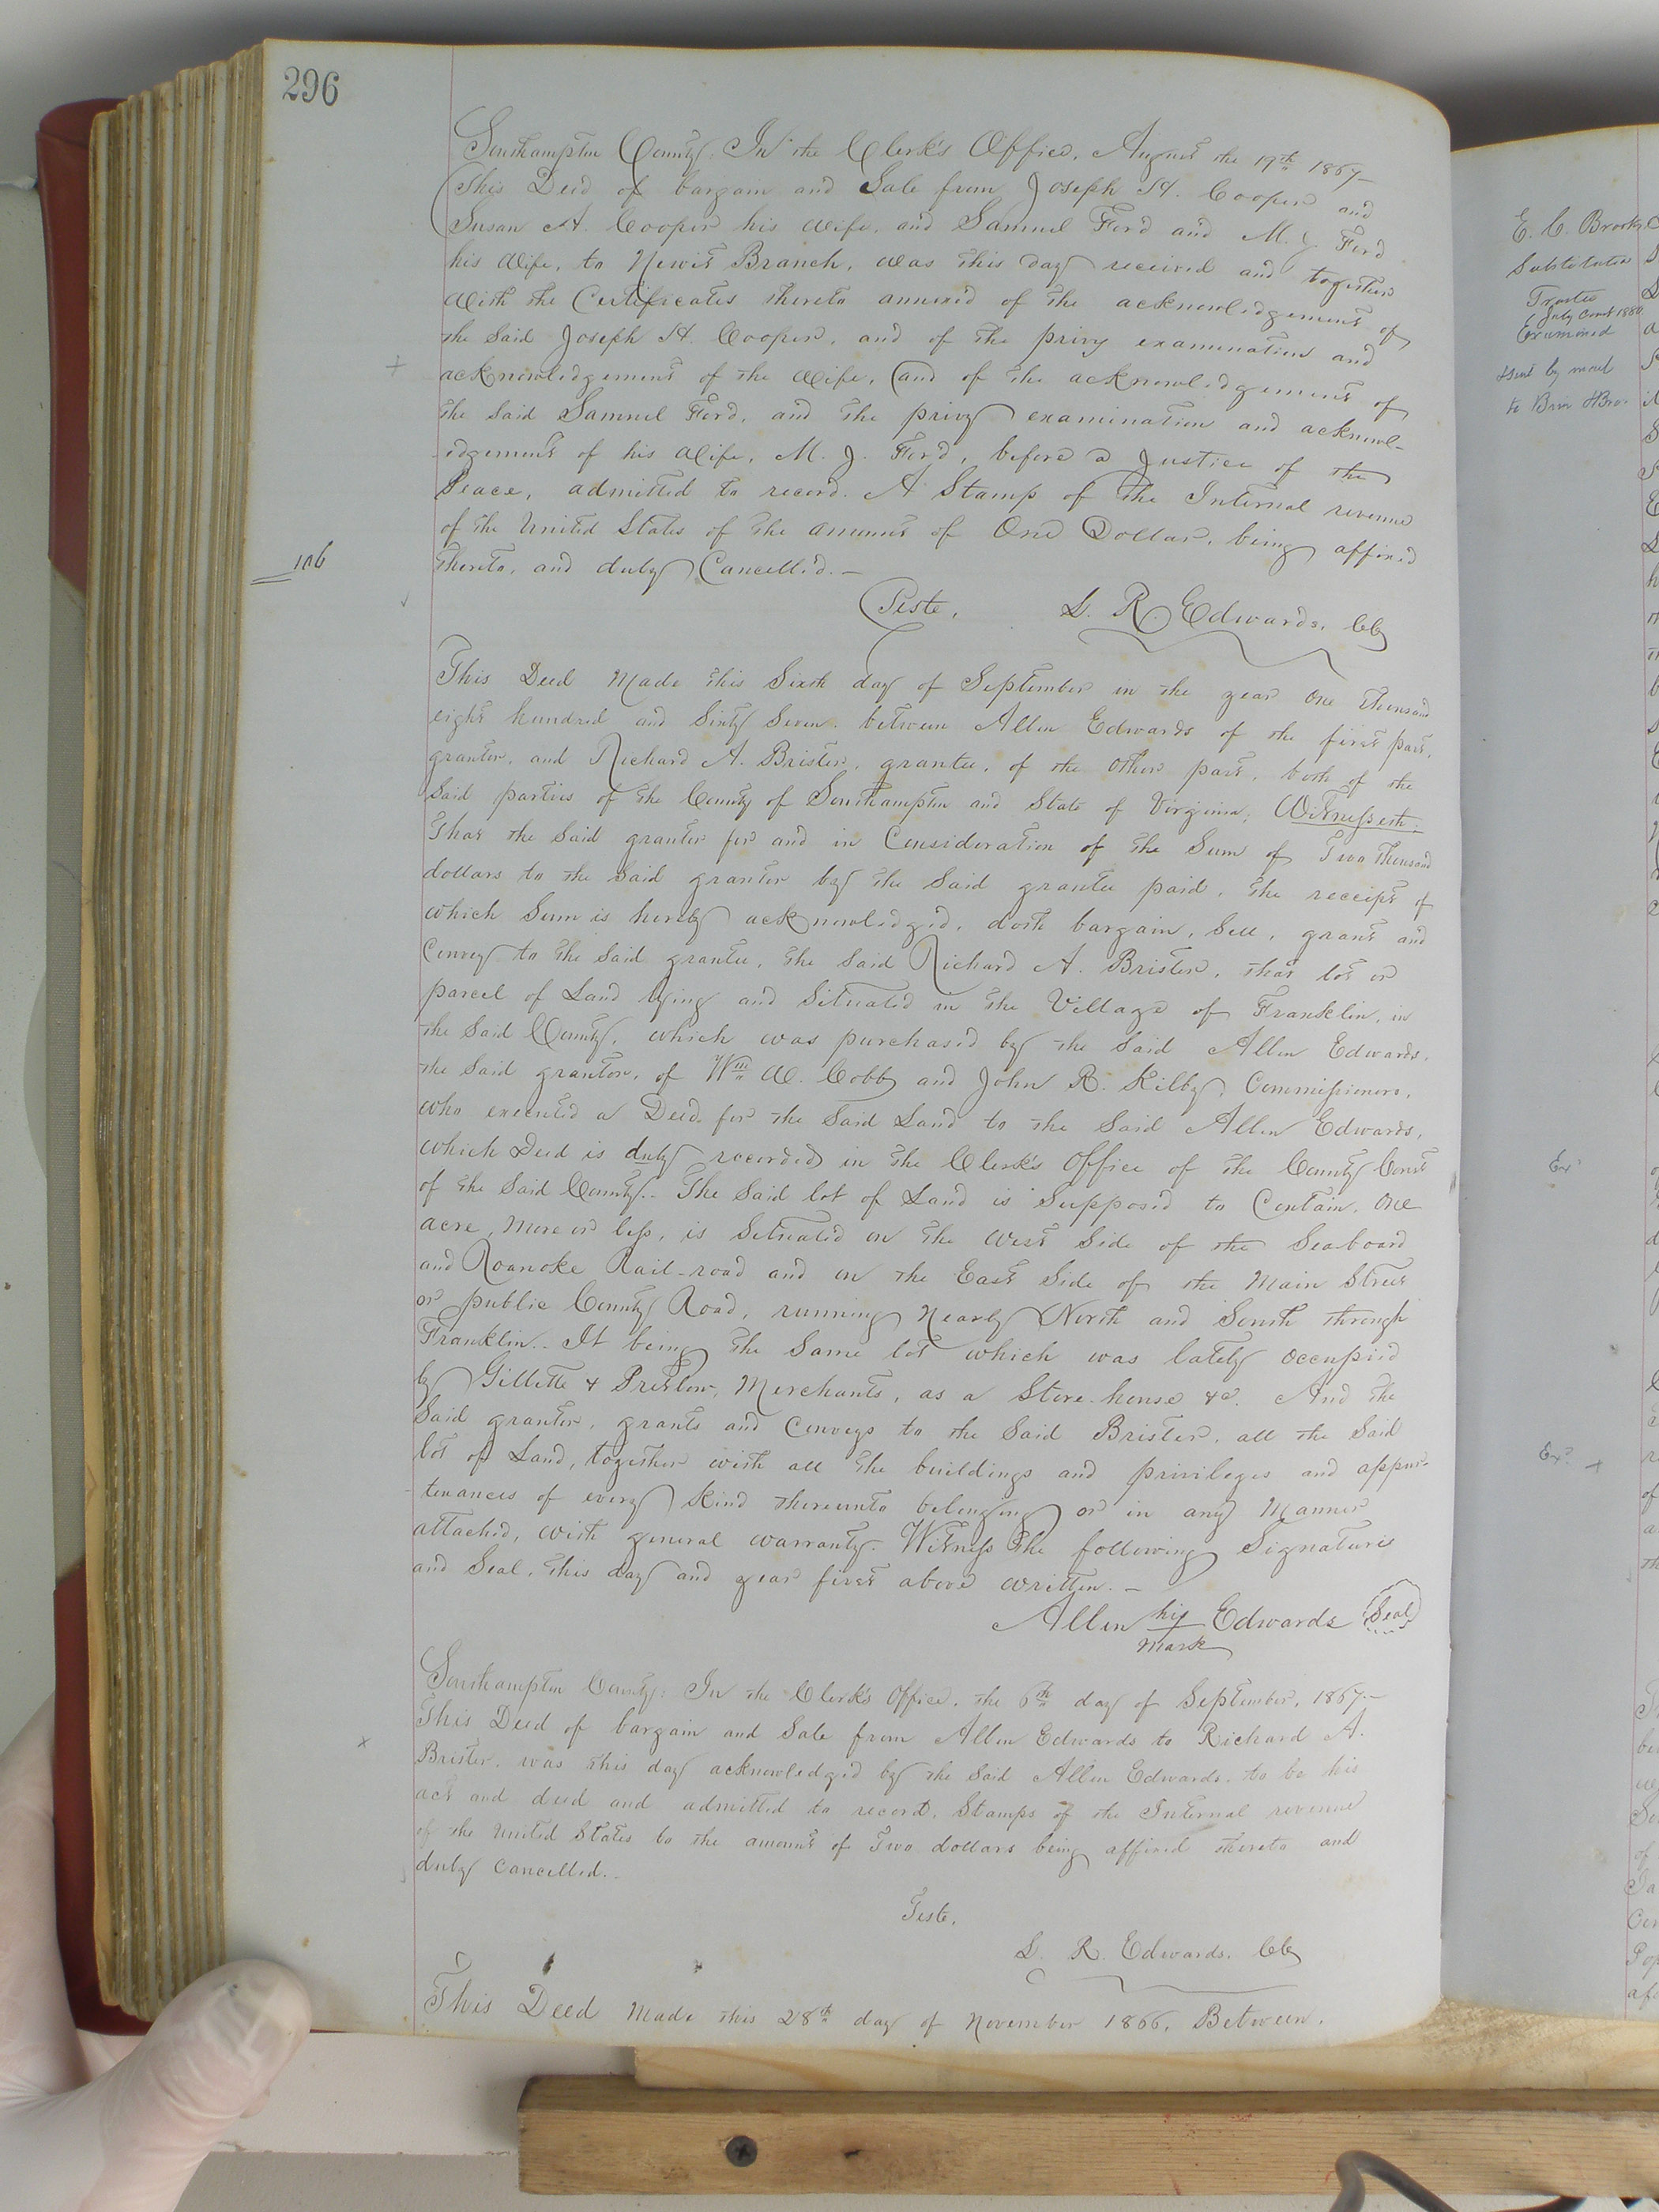 296
Southampton County: In the Clerk's Office, August the 19th 1867—
This Deed of bargain and Sale from Joseph H. Cooper and
Susan A. Cooper his wife, and Samuel Ford and M. J. Ford
his wife, to Newit Branch, was this day received and together
with the Certificates thereto annexed of the acknowledgement of
the said Joseph H. Cooper, and of the privy examination and
acknowledgement of the wife, and of the acknowledgement of
the said Samuel Ford, and the privy examination and acknowl-
edgement of his wife, M. J. Ford, before a Justice of the
Peace, admitted to record. A Stamp of the Internal revenue
of the United States of the amount of One Dollar, being affixed
thereto, and duly Cancelled.—
106
Teste, L. R. Edwards, CC
This Deed Made this Sixth day of September in the year One Thousand
eight hundred and Sixty Seven. between Allen Edwards of the first part,
grantor, and Richard A. Brister, grantee, of the other part, both of the
Said parties of the County of Southampton and State of Virginia, Witnesseth:
That the Said grantor for and in Consideration of the Sum of Two Thousand
dollars to the Said grantor by the Said grantee paid, the receipt of
which Sum is hereby acknowledged, doth bargain, Sell, grant and
Convey to the Said grantee, the Said Richard A. Brister, that lot or
parcel of Land lying and Situated in the Village of Franklin, in
the Said County, which was purchased by the Said Allen Edwards,
the Said grantor, of Wm W. Cobb and John R. Kilby, Commissioners,
who executed a Deed for the Said Land to the Said Allen Edwards,
which Deed is duly recorded in the Clerk's Office of the County Court
of the Said County.. The Said lot of Land is Supposed to Contain, One
acre, More or less, is Situated on the West Side of the Seaboard
and Roanoke Rail-road and on the East Side of the Main Street
or public County Road, running Nearly North and South through
Franklin.. It being the Same lot which was lately occupied
by Gillette & Pretlow, Merchants, as a Store-house &c. And the
Said grantor, grants and Conveys to the Said Brister, all the Said
lot of Land, together with all the buildings and privileges and appur-
tenances of every Kind thereunto belonging or in any Manner
attached, with general warranty. Witness the following Signature
and Seal, this day and year first above written.—
Allen his Edwards Seal
mark
Southampton County: In the Clerk's Office, the 6th day of September, 1867.—
This Deed of bargain and Sale from Allen Edwards to Richard A.
Brister, was this day acknowledged by the Said Allen Edwards, to be his
act and deed and admitted to record, Stamps of the Internal revenue
of the United States to the amount of Two dollars being affixed thereto and
duly Cancelled..
Teste,
L. R. Edwards, CC
This Deed Made this 28th day of November 1866, Between,
E. C. Brooks
Substitute
Trustee
July Court 1880
Examined
sent by mail
Ex'
Exd